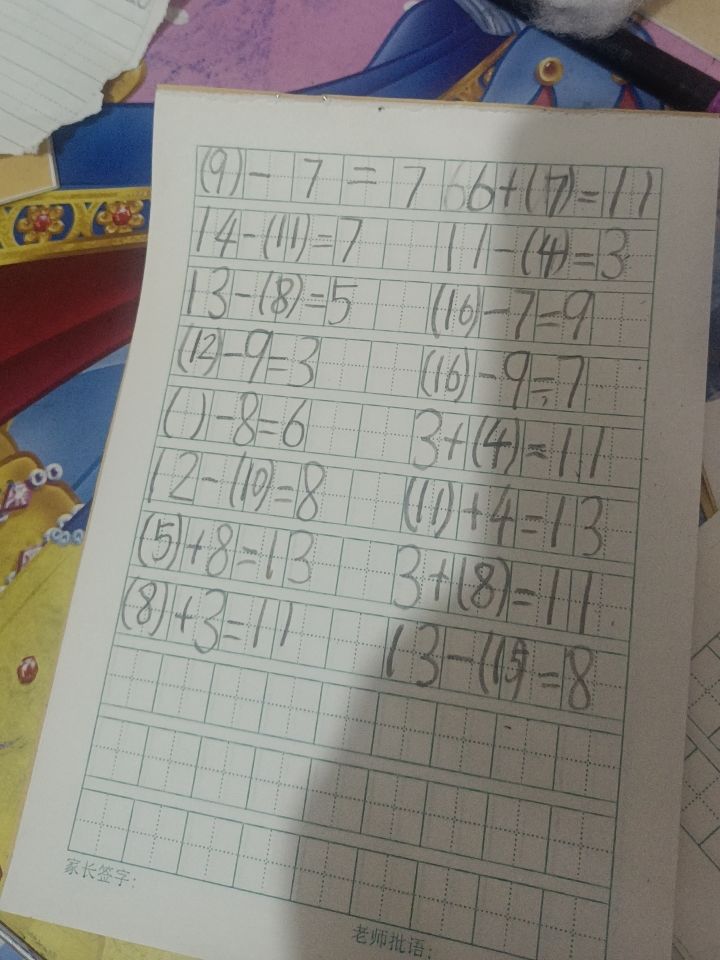 (9)-7=7 6+(7)=11
14-(11)=7 11-(4)=3
13-(8)=5 (16)-7=9
(12)-9=3 (16)-9=7
( )-8=6 3+(4)=11
12-(10)=8 (11)+4=13
(5)+8=13 3+(8)=11
(8)+3=11 13-(15)=8
家长签字:
老师批语: